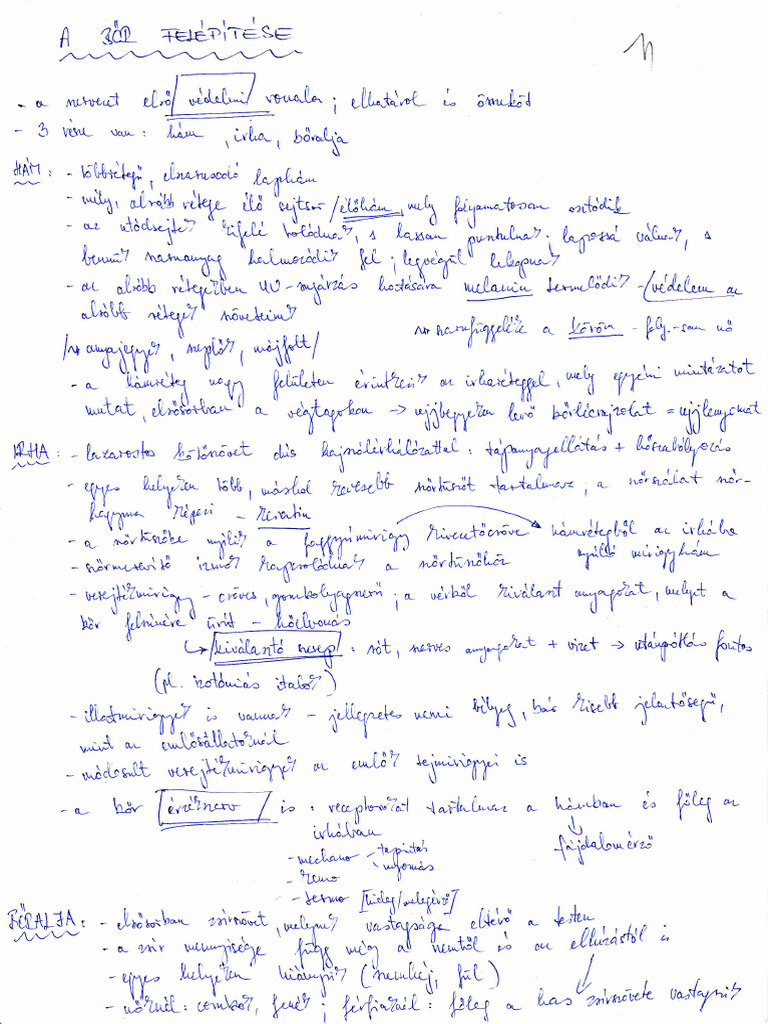 A BŐR FELÉPÍTÉSE
- a szervezet első /védelmi/ vonala; elhatárol és összeköt
- 3 része van: hám, irha, bőralja
HÁM: - többrétegű, elszarusodó laphám
- mély, alsóbb rétege élő sejtsor /élőhám, mely folyamatosan osztódik
- az utódsejtek kifelé tolódnak, s lassan pusztulnak; lapossá válnak, s
bennük szaruanyag halmozódik fel; legvégül lekopnak
- az alsóbb rétegekben UV-sugárzás hatására melanin termelődik - (védelem az
alsóbb rétegek szöveteink
szarufüggelék a köröm - foly.-san nő
/anyajegyek, szeplők, májfolt/
- a hámréteg nagy felületen érintkezik az irharéteggel, mely egyéni mintázatot
mutat, elsősorban a végtagokon → ujjbegyeken levő bőrlécrajzolat = ujjlenyomat
IRHA: - lazarostos kötőszövet dús hajszálérhálózattal: tápanyagellátás + hőszabályozás
- egyes helyeken több, máshol kevesebb szőrtüszőt tartalmaz; a szőrszálat szőr-
hagyma képezi - keratin
- a szőrtüszőbe nyílik a faggyúmirigy kivezetőcsöve
hámrétegből az irhába
nyúló mirigyhám
- szőrmerevítő izmok kapcsolódnak a szőrtüszőhöz
- verejtékmirigy - csöves, gombolyagszerű; a vérből kiválaszt anyagokat, melyet a
bőr felszínére ürít - hőelvonás
↳ /kiválasztó szerep/ : sót, szerves anyagokat + vizet → utánpótlás fontos
(pl. izotóniás italok)
- illatmirigyek is vannak - jellegzetes nemi bélyeg, bár kisebb jelentőségű,
mint az emlősállatoknál
- módosult verejtékmirigyek az emlők tejmirigyei is
- a bőr /érzékszerv/ is: receptorokat tartalmaz a hámban és főleg az
irhában
fájdalomérző
- mechano - tapintás
- nyomás
- kemo
- termo [hideg/melegérző]
BŐRALJA: - elsősorban zsírszövet, melynek vastagsága eltérő a testen
- a zsír mennyisége függ még a nemtől és az elhízástól is
- egyes helyeken hiányzik (szemhéj, fül)
- nőknél: combok, fenék; férfiaknál: főleg a has zsírszövete vastagszik